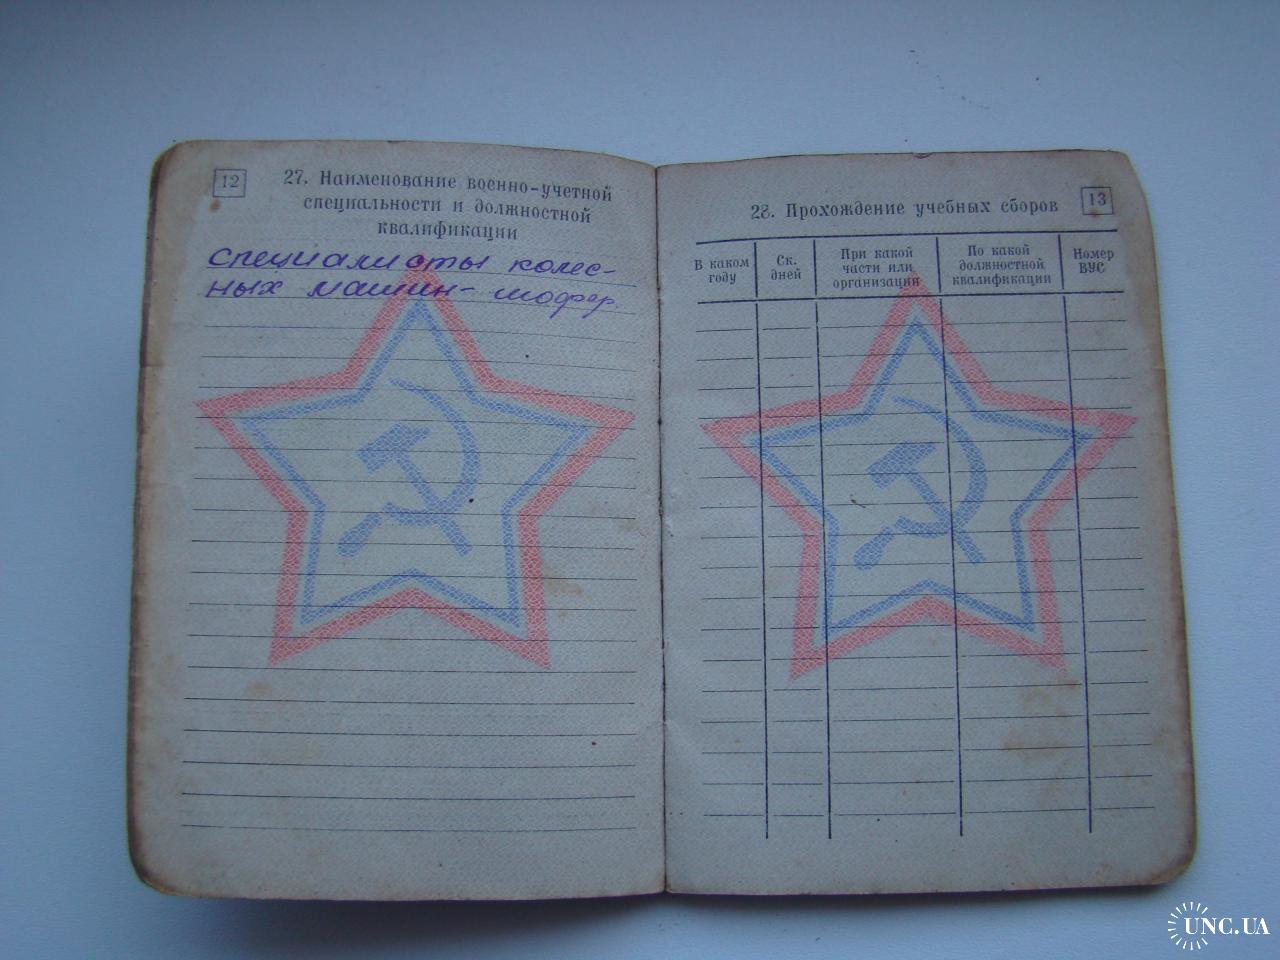 12
27. Наименование военно-учетной
специальности и должностной
квалификации
специалисты колес-
ных машин- шофер.
13
28. Прохождение учебных сборов
В каком
году
Ск.
дней
При какой
части или
организации
По какой
должностной
квалификации
Номер
ВУС
UNC.UA